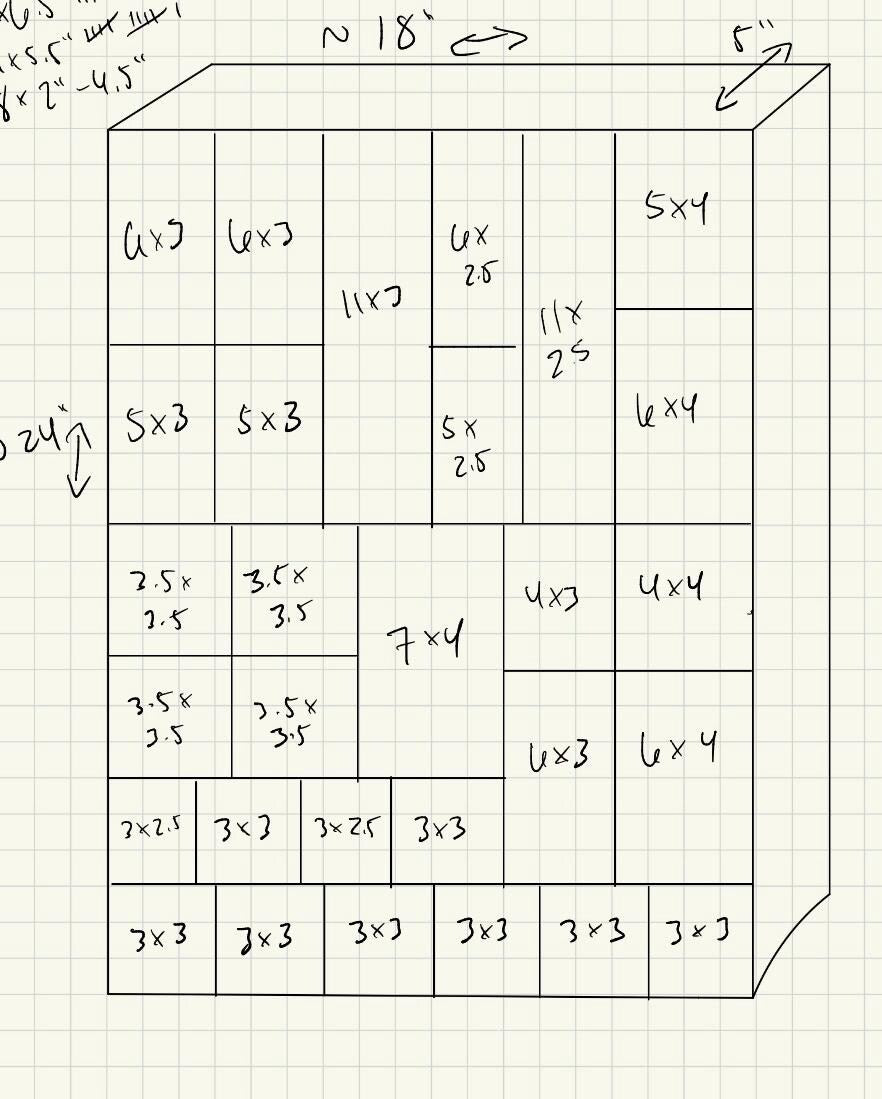 x6.5"
~ 18"
5"
1x5.5"
8 x 2" - 4.5"
6x3
6x3
11x3
6x
2.5
11x
2.5
5x4
24"
5x3
5x3
5x
2.5
6x4
3.5x
3.5
3.5x
3.5
7x4
4x3
4x4
3.5x
3.5
3.5x
3.5
6x3
6x4
3x2.5
3x3
3x2.5
3x3
3x3
3x3
3x3
3x3
3x3
3x3